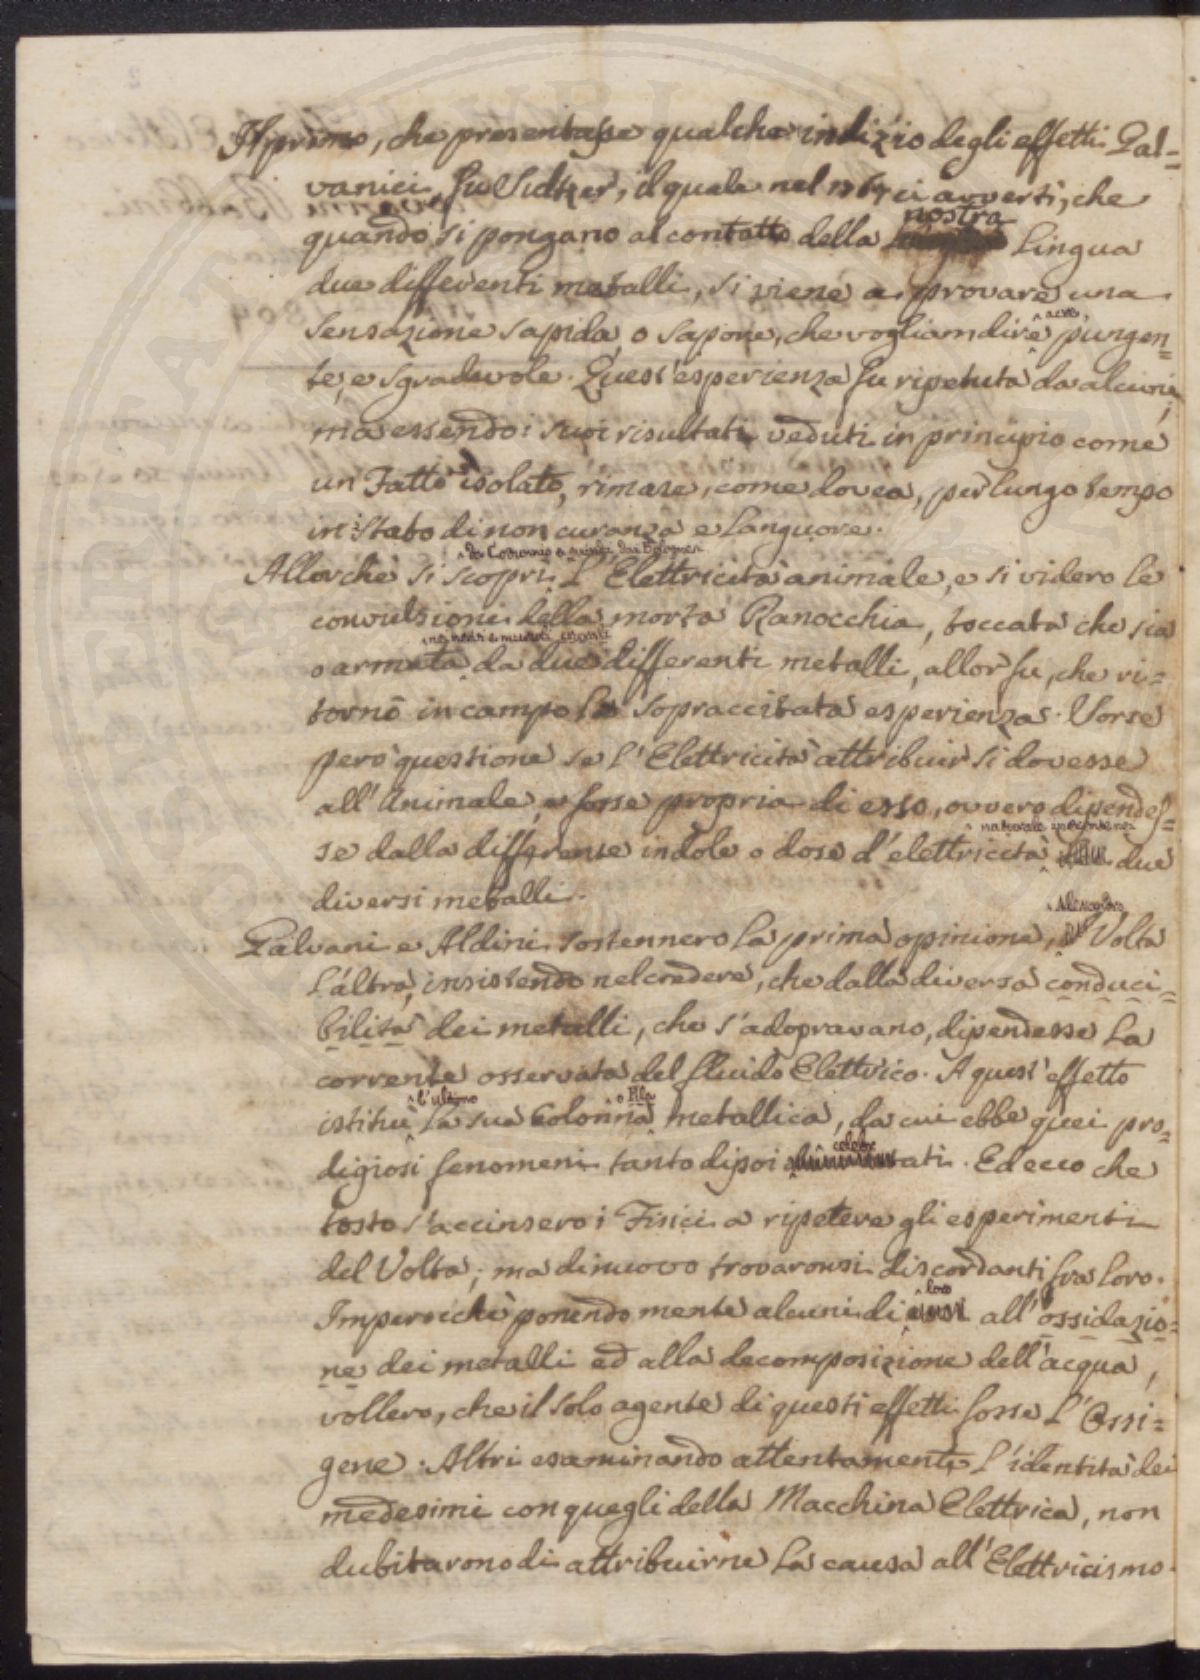 Il primo, che presentasse qualche indizio degli effetti Gal=
vanici, fu Sultzer, il quale nel 1767 ci avvertì, che
quando si pongano al contatto della nostra Lingua
due differenti metalli, si viene a provare una
sensazione sapida, o sapore, che vogliam dire pungen=
te, e sgradevole. Quest'esperienza fu ripetuta da alcuni;
ma essendo i suoi risultati veduti in principio come
un Fatto isolato, rimase, come dovea, per lungo tempo
in istato di non curanza e Languore.
Allorchè si scoprì L'Elettricità animale, e si videro le
convulsioni della morta Ranocchia, toccata che sia
o armata ne' nervi e muscoli da due differenti metalli, allor fu, che ri=
tornò in campo la sopraccitata esperienza. Vorse
però questione se l'Elettricità attribuir si dovesse
all'Animale, e fosse propria di esso, ovvero dipendes=
se dalla differente indole o dose d'elettricità naturale due
diversi metalli.
Galvani e Aldini sostennero la prima opinione, Alessandro Volta
L'altra, insistendo nel credere, che dalla diversa conduci=
bilità dei metalli, che s'adopravano, dipendesse La
corrente osservata del fluido Elettrico. A quest'effetto
istituì l'ultimo La sua Colonna o Pila metallica, da cui ebbe quei pro=
digiosi fenomeni tanto dipoi celebrati. Ed ecco che
tosto s'accinsero i Fisici a ripetere gli esperimenti
del Volta; ma di nuovo trovaronsi discordanti fra loro.
Imperocchè ponendo mente alcuni di loro all'ossidazio=
ne dei metalli ed alla decomposizione dell'acqua,
vollero, che il solo agente di questi effetti fosse L'Ossi=
gene. Altri esaminando attentamente L'identità dei
medesimi con quegli della Macchina Elettrica, non
dubitarono di attribuirne La causa all'Elettricismo.